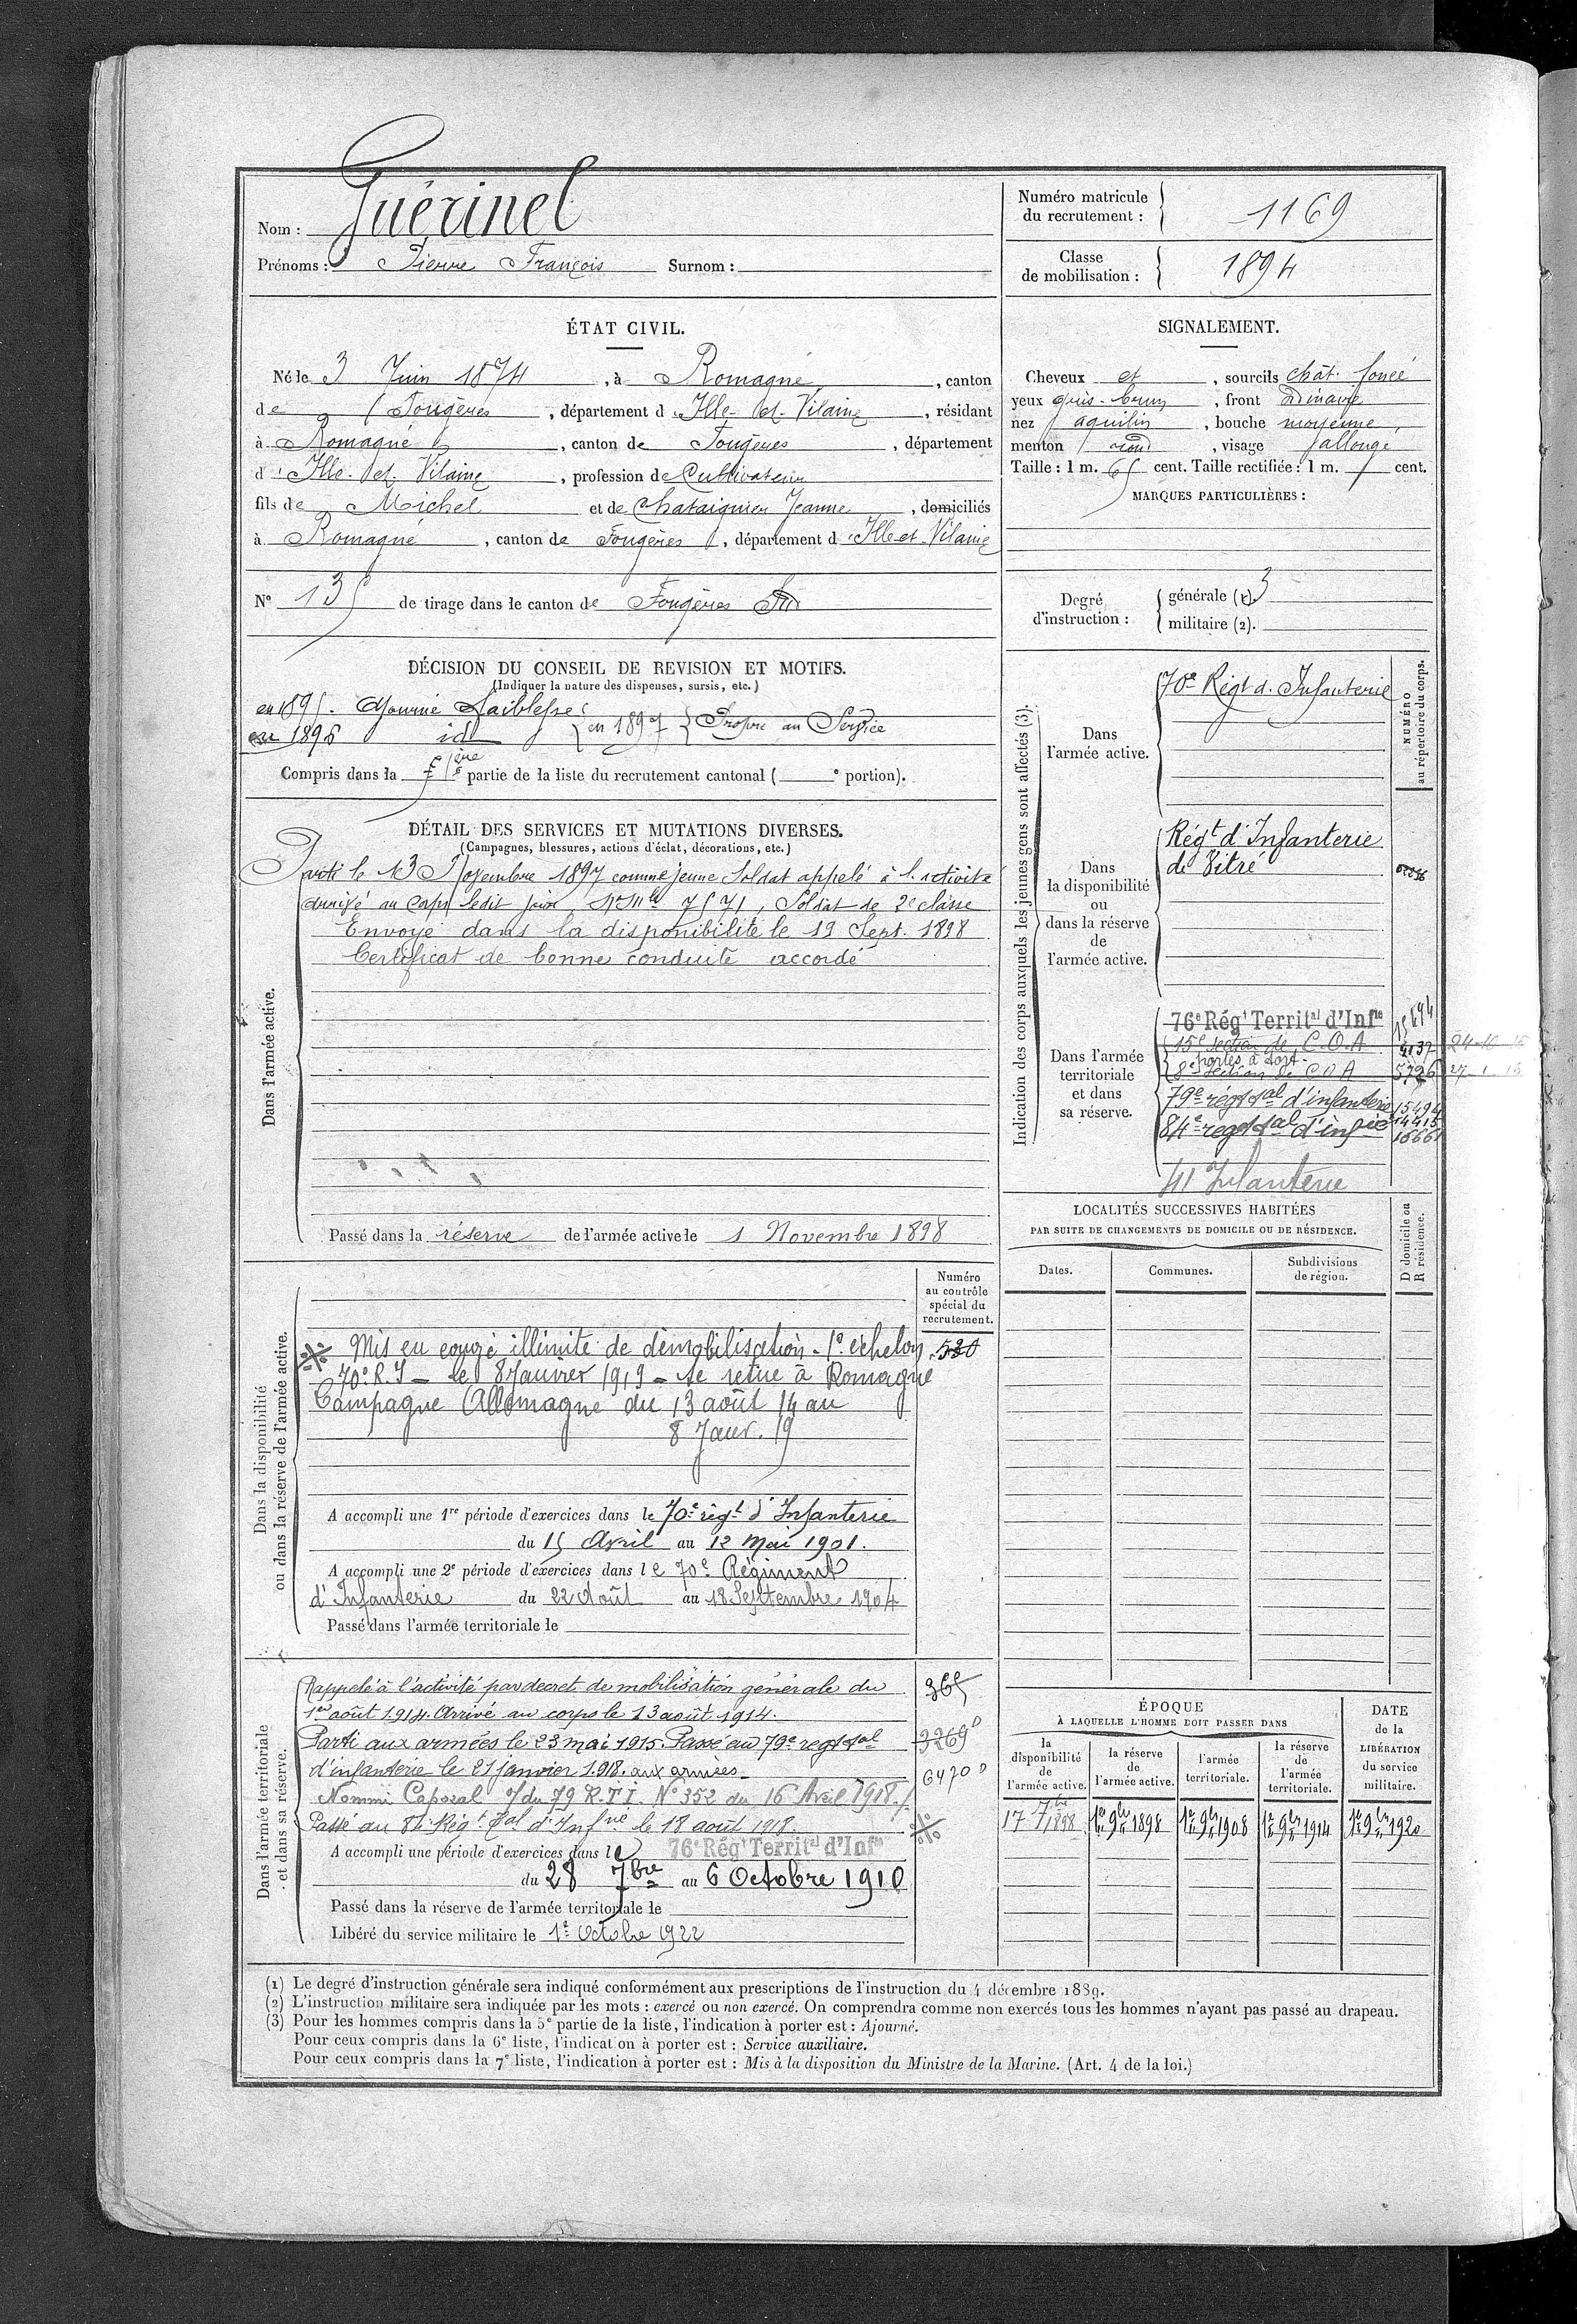 Nom : Guérinel
Prénoms : Pierre François Surnom :
Numéro matricule du recrutement : 1169
Classe de mobilisation : 1894
ÉTAT CIVIL.
Né le 3 Juin 1874, à Romagné, canton
de Fougères, département d'Ille-et-Vilaine, résidant
à Romagné, canton de Fougères, département
d'Ille-et-Vilaine, profession de Cultivateur
fils de Michel et de Chataignier Jeanne, domiciliés
à Romagné, canton de Fougères, département d'Ille-et-Vilaine
N° 135 de tirage dans le canton de Fougères Sud
SIGNALEMENT.
Cheveux et, sourcils chât. foncé
yeux gris-brun, front ordinaire
nez aquilin, bouche moyenne,
menton rond, visage allongé
Taille : 1 m. 65 cent. Taille rectifiée : 1 m. / cent.
MARQUES PARTICULIÈRES :
Degré d'instruction : générale (1). 3
militaire (2).
DÉCISION DU CONSEIL DE REVISION ET MOTIFS.
(Indiquer la nature des dispenses, sursis, etc.)
en 1895. Ajourné Faiblesse
en 1896 id { en 1897 { Propre au Service
Compris dans la partie de la liste du recrutement cantonal ( e portion).
DÉTAIL DES SERVICES ET MUTATIONS DIVERSES.
(Campagnes, blessures, actions d'éclat, décorations, etc.)
Dans l'armée active.
Parti le 13 Novembre 1897 comme jeune Soldat appelé à l'activité
arrivé au Corps ledit jour, N° Mle 7571, Soldat de 2e classe
Envoyé dans la disponibilité le 19 Sept. 1898
Certificat de bonne conduite accordé
Passé dans la réserve de l'armée active le 1 Novembre 1898
Indication des corps auxquels les jeunes gens sont affectés (3).
NUMÉRO au répertoire du corps.
Dans l'armée active.
70e Régt d'Infanterie
Dans la disponibilité ou dans la réserve de l'armée active.
Régt d'Infanterie
de Vitré
Dans l'armée territoriale et dans sa réserve.
76e Régt Territal d'Infie
15e section de C.O.A 4137
8e section de C O A 5726
79e régt tal d'infanterie 15494
84e régt tal d'infie 14415
16661
41 Infanterie
LOCALITÉS SUCCESSIVES HABITÉES
PAR SUITE DE CHANGEMENTS DE DOMICILE OU DE RÉSIDENCE.
Dates. Communes. Subdivisions de région. D domicile ou R résidence.
Dans la disponibilité ou dans la réserve de l'armée active.
Numéro au contrôle spécial du recrutement.
Mis en congé illimité de démobilisation - 1e échelon 530
70e R.I - le 8 Janvier 1919 - se retire à Romagné
Campagne Allemagne du 13 août 14 au
8 Janv. 19
A accompli une 1re période d'exercices dans le 70e régt d'Infanterie
du 15 Avril au 12 Mai 1901.
A accompli une 2e période d'exercices dans le 70e Régiment
d'Infanterie du 22 Août au 18 Septembre 1904
Passé dans l'armée territoriale le
Dans l'armée territoriale et dans sa réserve.
Rappelé à l'activité par décret de mobilisation générale du 365
1er août 1914. Arrivé au corps le 13 août 1914.
Parti aux armées le 23 mai 1915. Passé au 79e régt tal 3269
d'infanterie le 21 janvier 1918. aux armées 6470
Nommé Caporal O/ du 79 R.T.I. N° 352 du 16 Avril 1918.
Passé au 84 Régt Tal d'Infrie le 18 août 1918
A accompli une période d'exercices dans le 76e Régt Territal d'Infie
du 28 7bre au 6 Octobre 1910
Passé dans la réserve de l'armée territoriale le
Libéré du service militaire le 1er Octobre 1922
ÉPOQUE
À LAQUELLE L'HOMME DOIT PASSER DANS
la disponibilité de l'armée active. la réserve de l'armée active. l'armée territoriale. la réserve de l'armée territoriale.
DATE de la LIBÉRATION du service militaire.
17 7bre 1898 1er 9bre 1898 1er 9bre 1908 1er 9bre 1914 1er 9bre 1920
(1) Le degré d'instruction générale sera indiqué conformément aux prescriptions de l'instruction du 4 décembre 1889.
(2) L'instruction militaire sera indiquée par les mots : exercé ou non exercé. On comprendra comme non exercés tous les hommes n'ayant pas passé au drapeau.
(3) Pour les hommes compris dans la 5e partie de la liste, l'indication à porter est : Ajourné.
Pour ceux compris dans la 6e liste, l'indication à porter est : Service auxiliaire.
Pour ceux compris dans la 7e liste, l'indication à porter est : Mis à la disposition du Ministre de la Marine. (Art. 4 de la loi.)